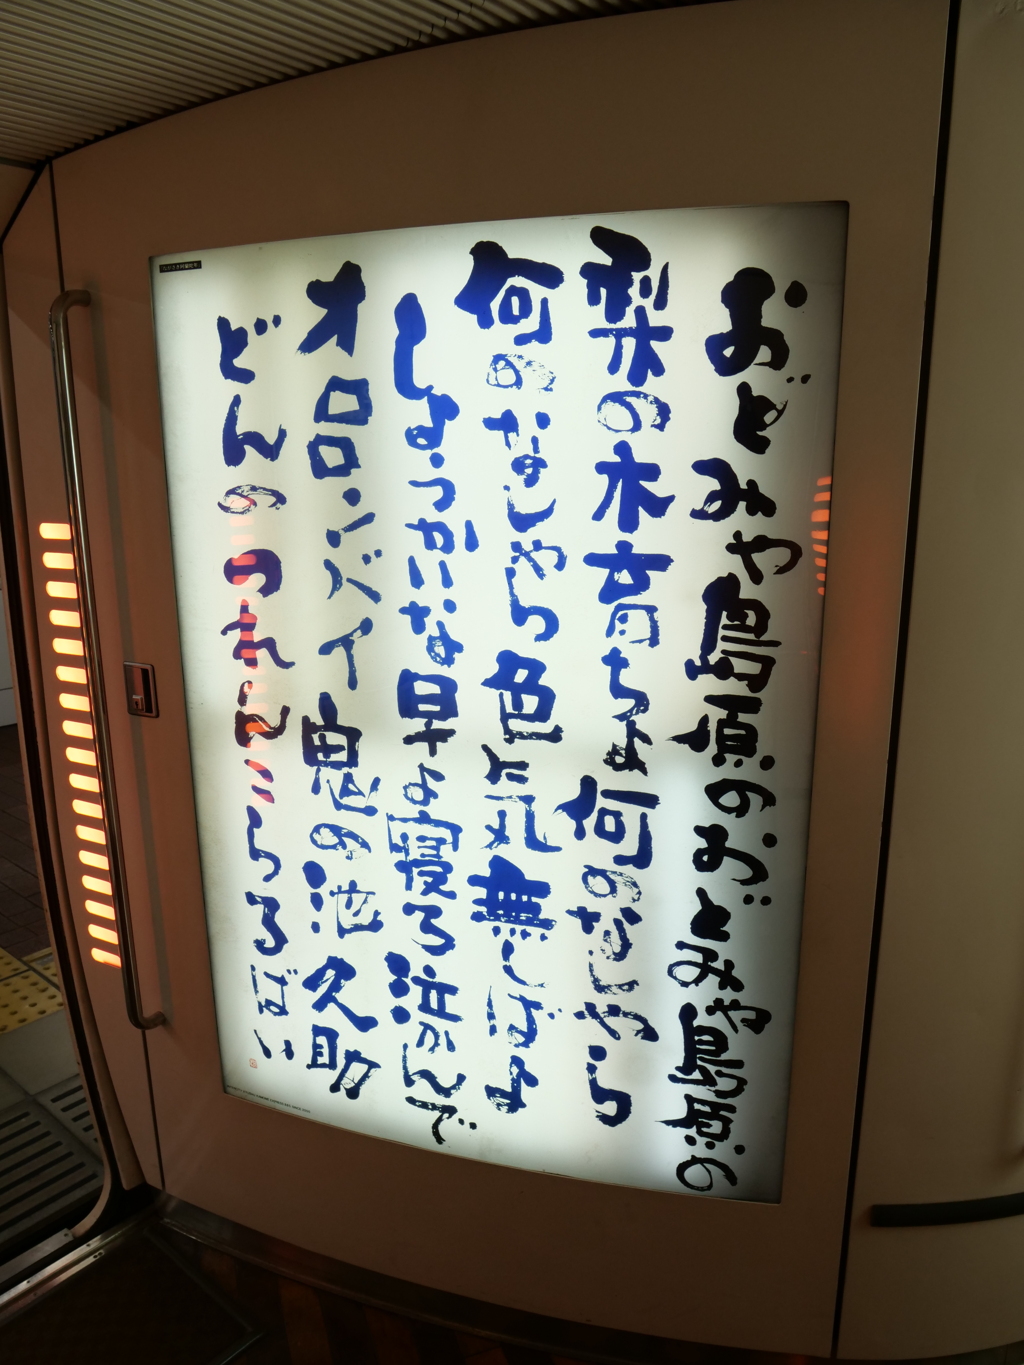 おどみや島原のおどみや島原の
梨の木育ちよ何のなしやら
何のなしやら色気無しばよ
しょうかいな早よ寝ろ泣かんで
オロロンバイ鬼の池久助
どんのつれんこらるばい